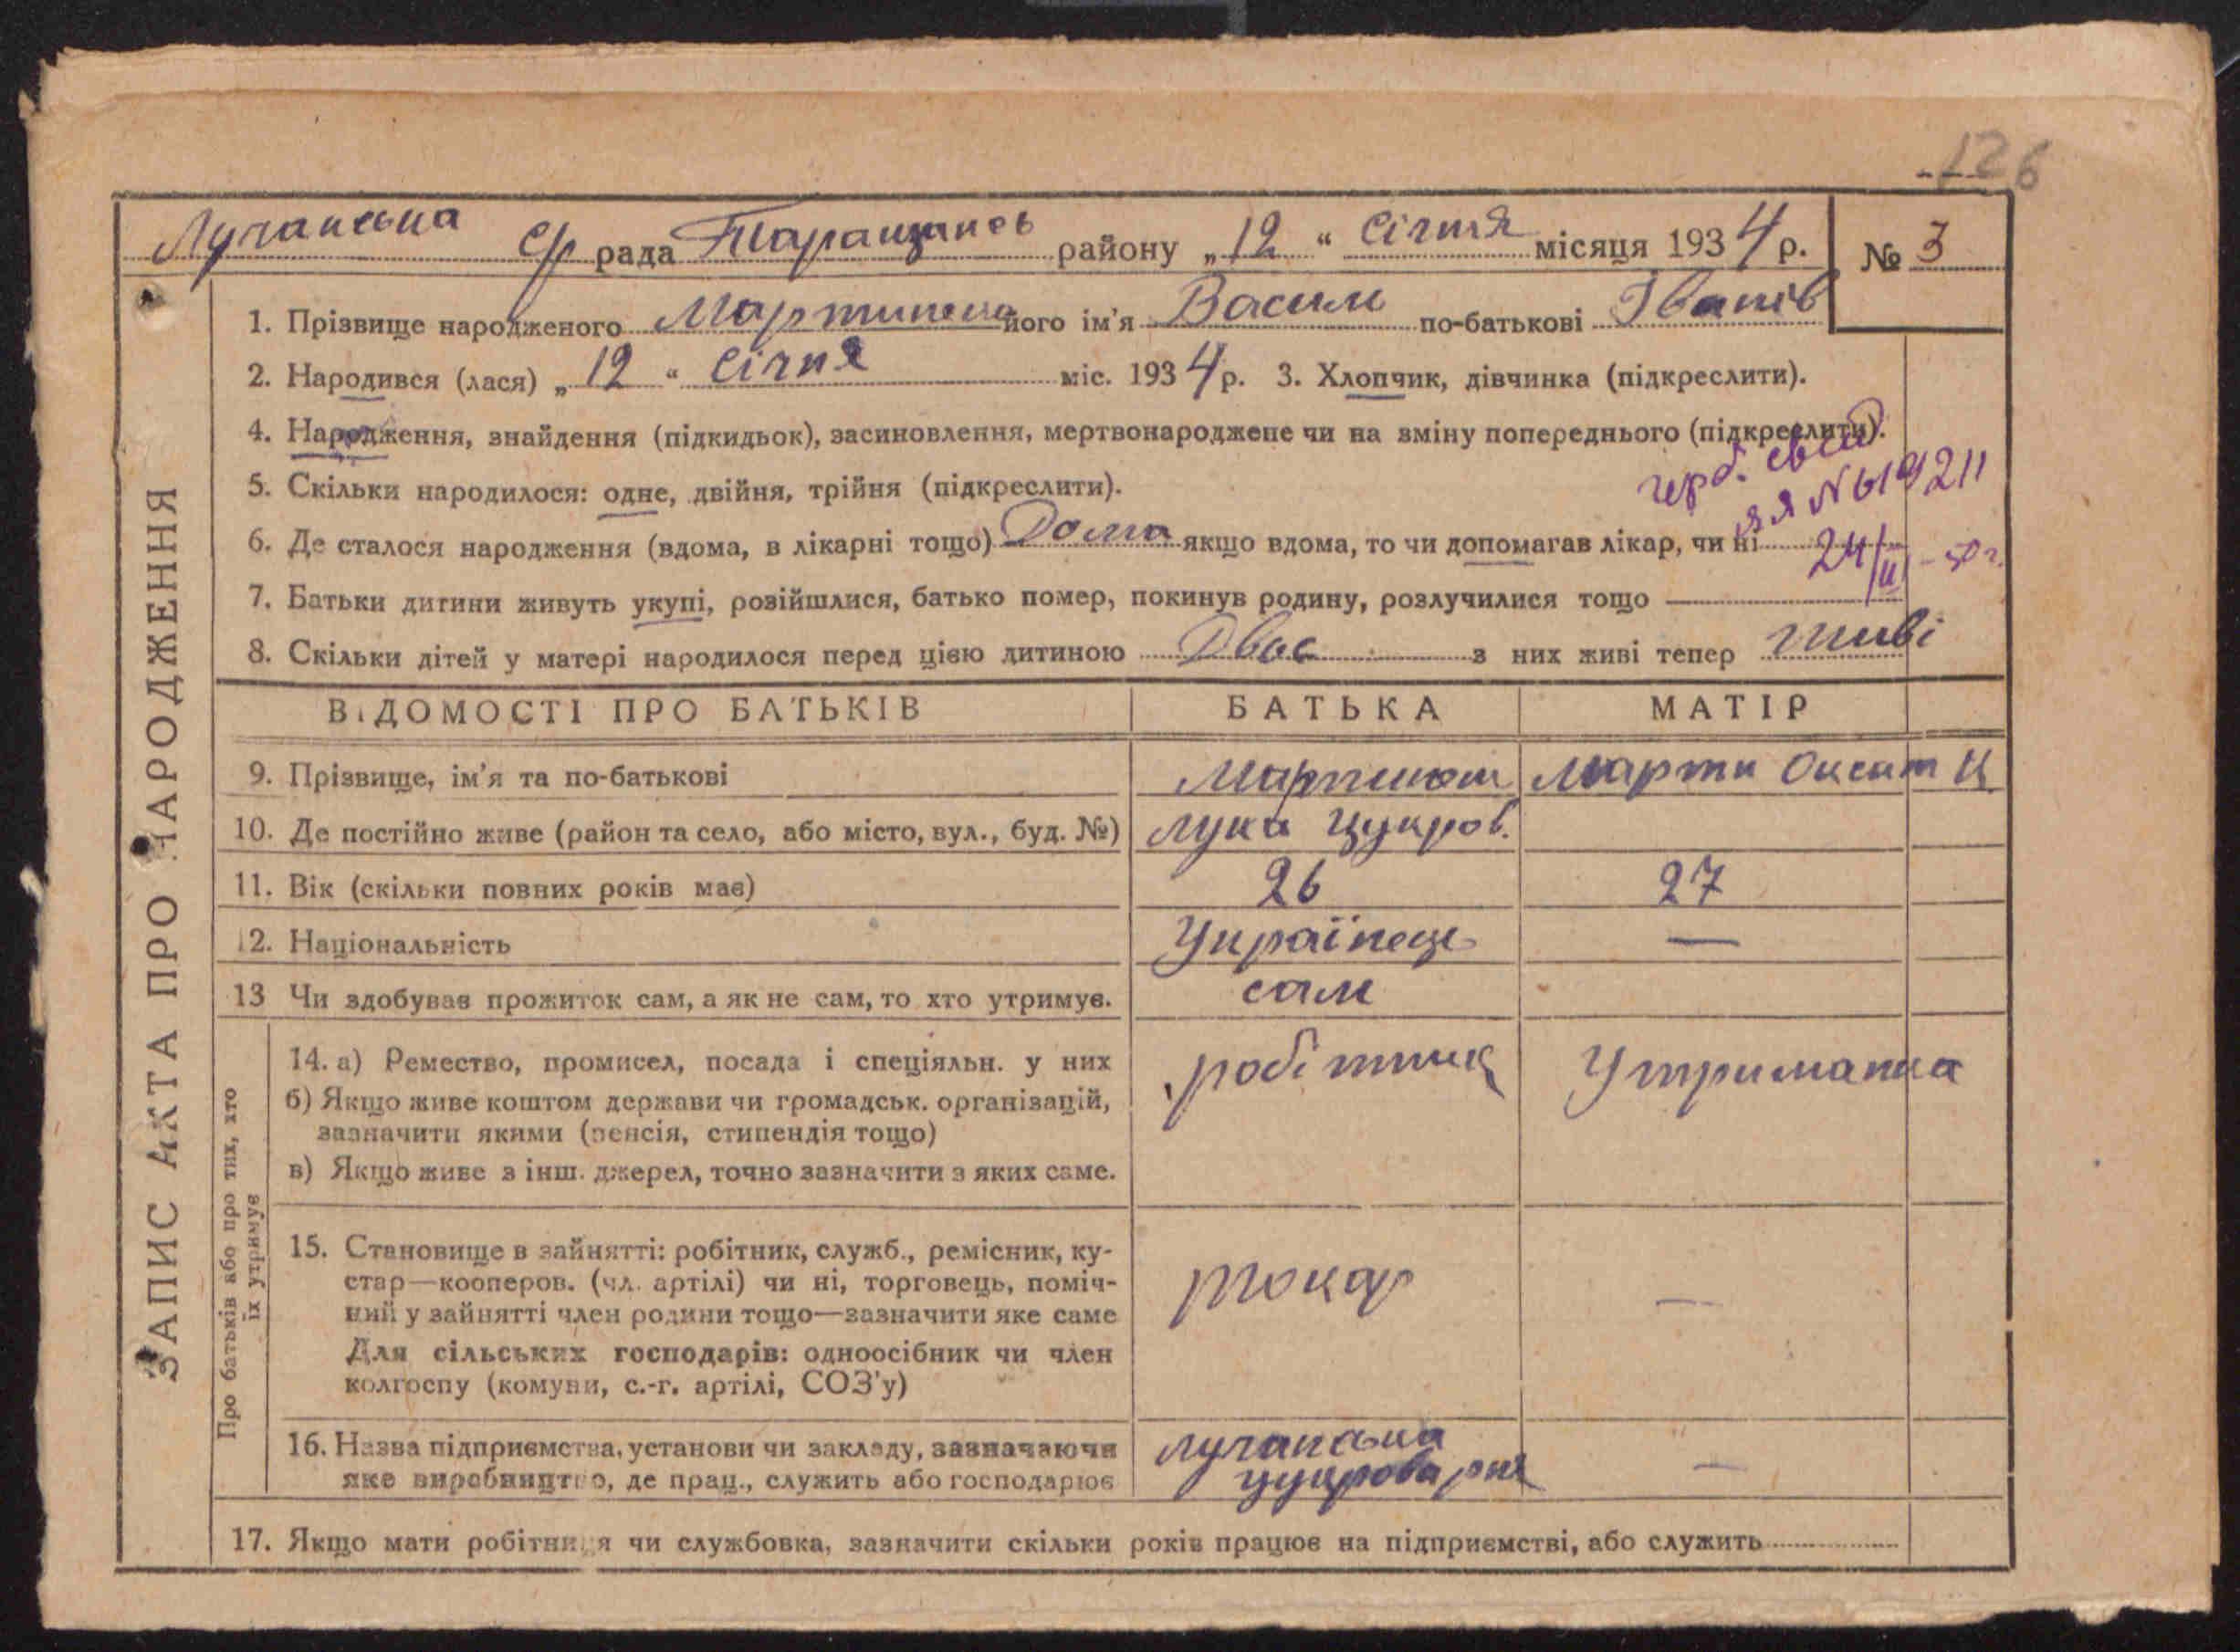 126
Лучанська с/р рада Таращансь району „12“ Січня місяця 1934 р. № 3
1. Прізвище народженого його ім'я Васил по-батькові Іванів
2. Народився (лася) „12“ Січня міс. 1934 р. 3. Хлопчик, дівчинка (підкреслити).
4. Народження, знайдення (підкидьок), засиновлення, мертвонароджене чи на зміну попереднього (підкреслити).
5. Скільки народилося: одне, двійня, трійня (підкреслити).
6. Де сталося народження (вдома, в лікарні тощо) Дома якщо вдома, то чи допомагав лікар, чи ні
7. Батьки дитини живуть укупі, розійшлися, батько помер, покинув родину, розлучилися тощо —
8. Скільки дітей у матері народилося перед цією дитиною Двоє з них живі тепер живі
ВІДОМОСТІ ПРО БАТЬКІВ БАТЬКА МАТІР
9. Прізвище, ім'я та по-батькові
10. Де постійно живе (район та село, або місто, вул., буд. №) Лука цукров.
11. Вік (скільки повних років має) 26 27
12. Національність Українець —
13 Чи здобуває прожиток сам, а як не сам, то хто утримує. сам
14. а) Ремество, промисел, посада і спеціяльн. у них робітник Утриманка
б) Якщо живе коштом держави чи громадськ. організацій,
зазначити якими (пенсія, стипендія тощо)
в) Якщо живе з інш. джерел, точно зазначити з яких саме.
15. Становище в зайнятті: робітник, служб., ремісник, ку-
стар—кооперов. (чл. артілі) чи ні, торговець, поміч-
ний у зайнятті член родини тощо—зазначити яке саме токар —
Для сільських господарів: одноосібник чи член
колгоспу (комуни, с.-г. артілі, СОЗ'у)
16. Назва підприємства, установи чи закладу, зазначаючи Лучанська
яке виробництво, де прац., служить або господарює цукроварня —
17. Якщо мати робітниця чи службовка, зазначити скільки років працює на підприємстві, або служить
ЗАПИС АКТА ПРО НАРОДЖЕННЯ
Про батьків або про тих, хто
їх утримує